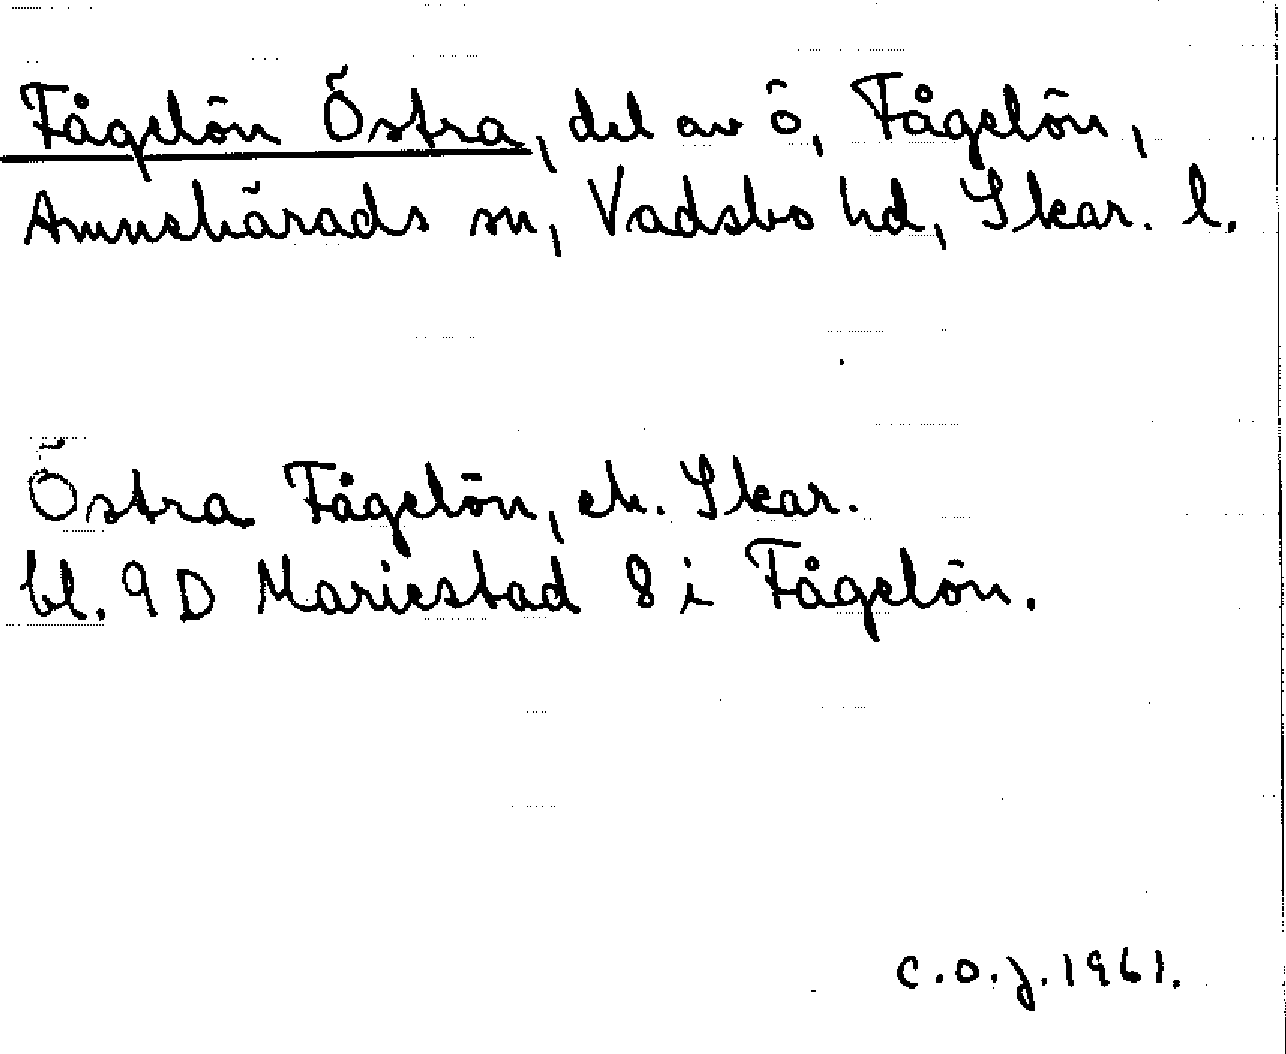 Fågelön Östra, del av ö, Fågelön,
Amnehärads sn, Vadsbo hd, Skar. l.
Östra Fågelön, ek. Skar.
bl. 9D Mariestad 8 i Fågelön.
C.O.J. 1961.